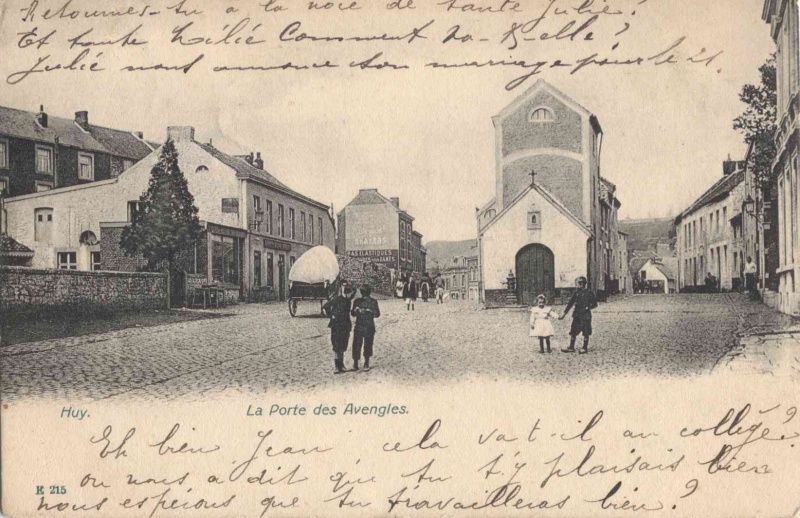 Retournes-tu à la noce de tante Julie!
Et tante Lélié Comment va-t-elle?
Julie nous annonce son mariage pour le 21.
BAS ELASTIQUES
Huy.
La Porte des Avengles.
Eh bien Jean, cela vat-il au collège?
ou nous a dit que tu t'y plaisais bien
nous espérons que tu travailleras bien?
E 215